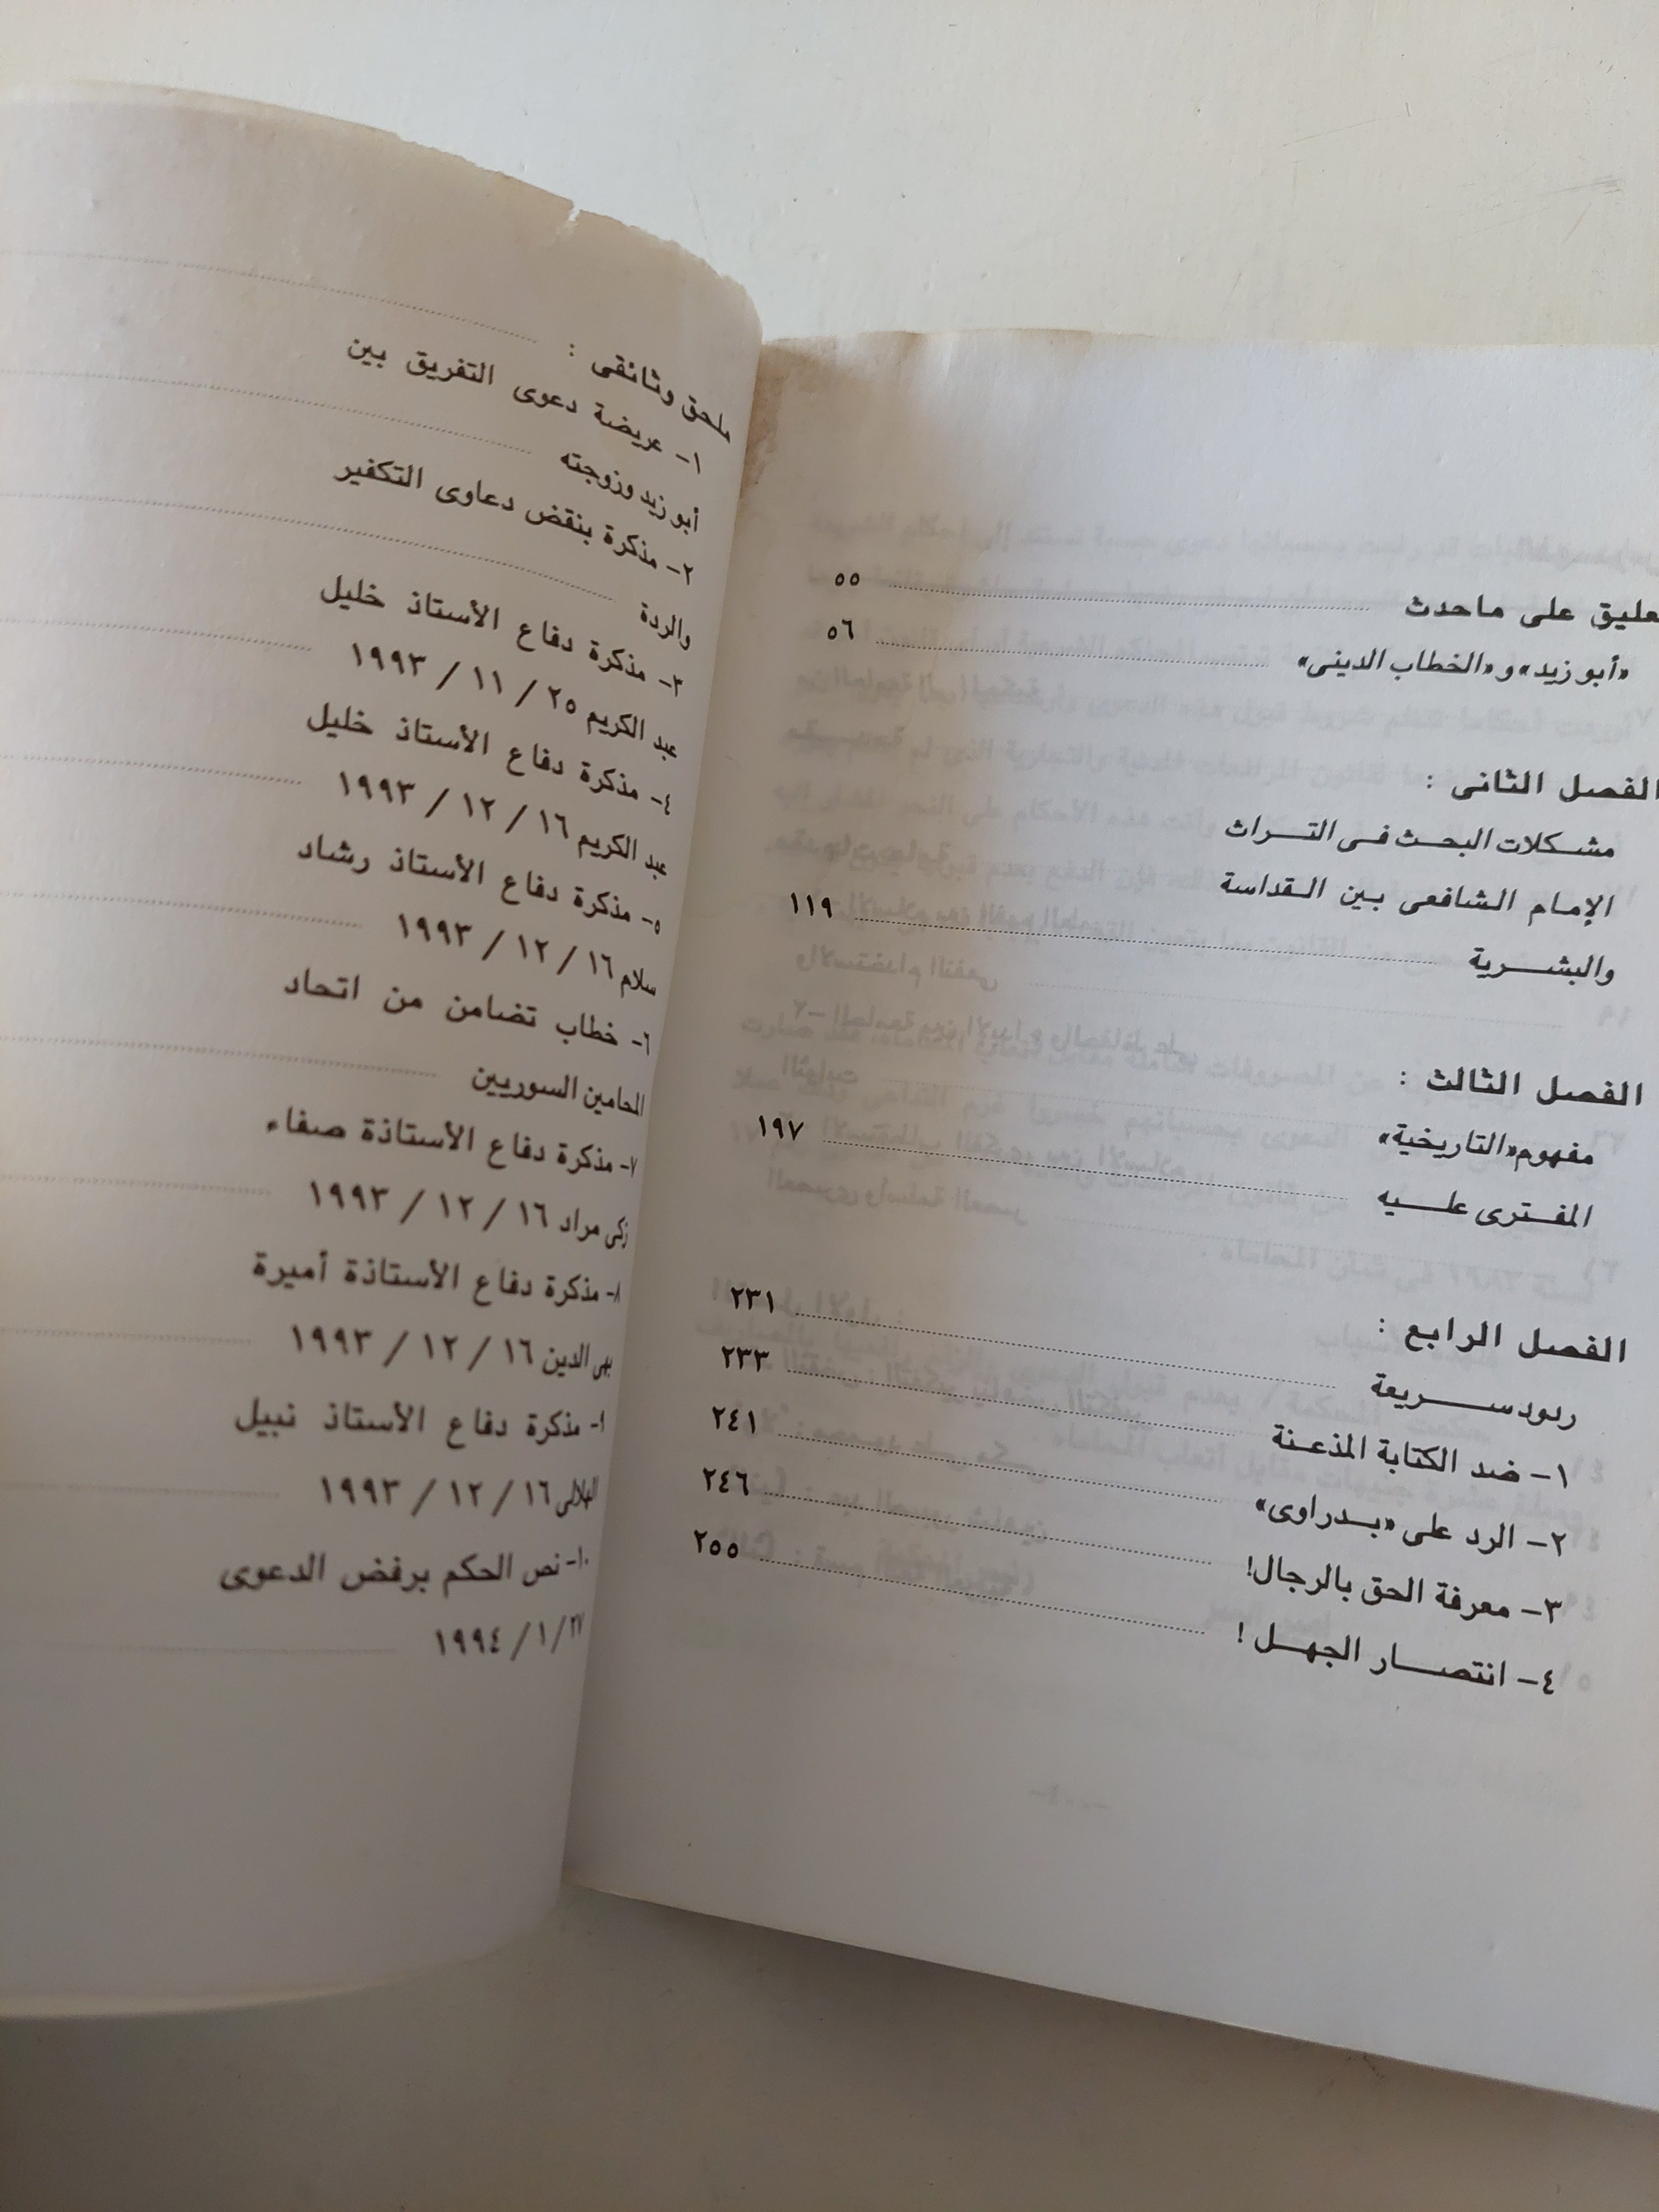 عليق على ماحدث ٥٥
«أبو زيد» و «الخطاب الدينى» ٥٦
الفصل الثانى :
مشكلات البحث فى التراث
الإمام الشافعى بين القداسة
والبشرية ١١٩
الفصل الثالث :
مفهوم «التاريخية»
المفترى عليه ١٩٧
الفصل الرابع :
ردود سريعة ٢٣١
١- ضد الكتابة المذعنة ٢٣٣
٢- الرد على «بدراوى» ٢٤١
٣- معرفة الحق بالرجال! ٢٤٦
٤- انتصار الجهل ! ٢٥٥
ملحق وثائقى :
١- عريضة دعوى التفريق بين
أبو زيد وزوجته
٢- مذكرة بنقض دعاوى التكفير
والردة
٣- مذكرة دفاع الأستاذ خليل
عبد الكريم ٢٥ / ١١ / ١٩٩٣
٤- مذكرة دفاع الأستاذ خليل
عبد الكريم ١٦ / ١٢ / ١٩٩٣
٥- مذكرة دفاع الأستاذ رشاد
سلام ١٦ / ١٢ / ١٩٩٣
٦- خطاب تضامن من اتحاد
المحامين السوريين
٧- مذكرة دفاع الأستاذة صفاء
زكى مراد ١٦ / ١٢ / ١٩٩٣
٨- مذكرة دفاع الأستاذة أميرة
بهى الدين ١٦ / ١٢ / ١٩٩٣
٩- مذكرة دفاع الأستاذ نبيل
الهلالى ١٦ / ١٢ / ١٩٩٣
١٠- نص الحكم برفض الدعوى
٢٧ / ١ / ١٩٩٤